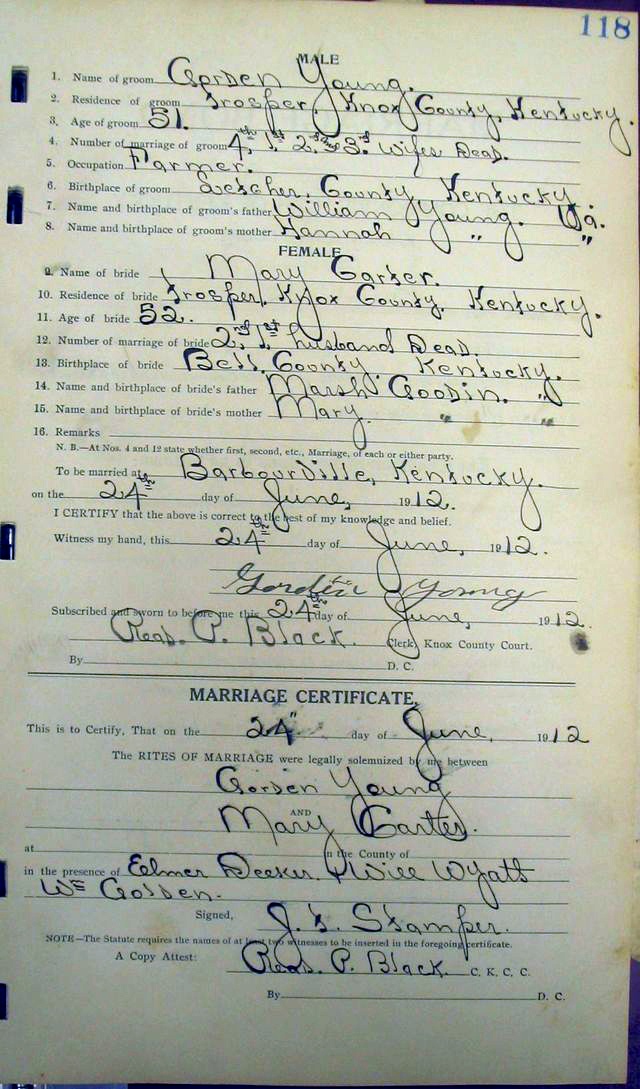 118
MALE
1. Name of groom Gorden Young.
2. Residence of groom Trosper, Knox County, Kentucky.
3. Age of groom 51.
4. Number of marriage of groom 4th, 1st 2nd 3rd Wifes Dead.
5. Occupation Farmer.
6. Birthplace of groom Letcher, County Kentucky.
7. Name and birthplace of groom's father William Young. Va.
8. Name and birthplace of groom's mother Hannah " "
FEMALE
9. Name of bride Mary Carter.
10. Residence of bride Trosper, Knox County, Kentucky.
11. Age of bride 52.
12. Number of marriage of bride 2nd 1st husband Dead.
13. Birthplace of bride Bell, County, Kentucky.
14. Name and birthplace of bride's father Marsh Goodin. "
15. Name and birthplace of bride's mother Mary. " "
16. Remarks
N. B.—At Nos. 4 and 12 state whether first, second, etc., Marriage, of each or either party.
To be married at Barbourville, Kentucky.
on the 24th day of June, 1912.
I CERTIFY that the above is correct to the best of my knowledge and belief.
Witness my hand, this 24th day of June, 1912.
Gordin Young
Subscribed and sworn to before me this 24th day of June, 1912.
Read. P. Black. Clerk, Knox County Court.
By D. C.
MARRIAGE CERTIFICATE.
This is to Certify, That on the 24" day of June, 1912
The RITES OF MARRIAGE were legally solemnized by me between
Gorden Young
AND
Mary Carter.
at in the County of
in the presence of Elmer Decker. & Will Wyatt
Wm Golden.
Signed, J. T. Stamper.
NOTE—The Statute requires the names of at least two witnesses to be inserted in the foregoing certificate.
A Copy Attest: Read. P. Black. C. K. C. C.
By D. C.